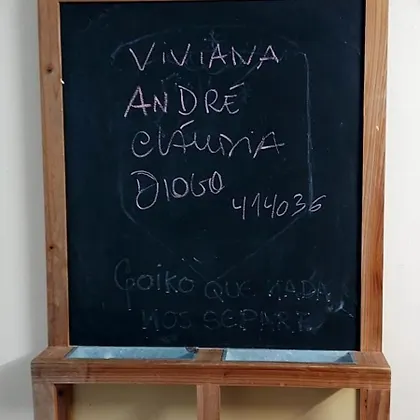 VIVIANA
ANDRÉ
CLÁUDIA
DIOGO
414036
GOIKO QUE NADA
NOS SEPARE